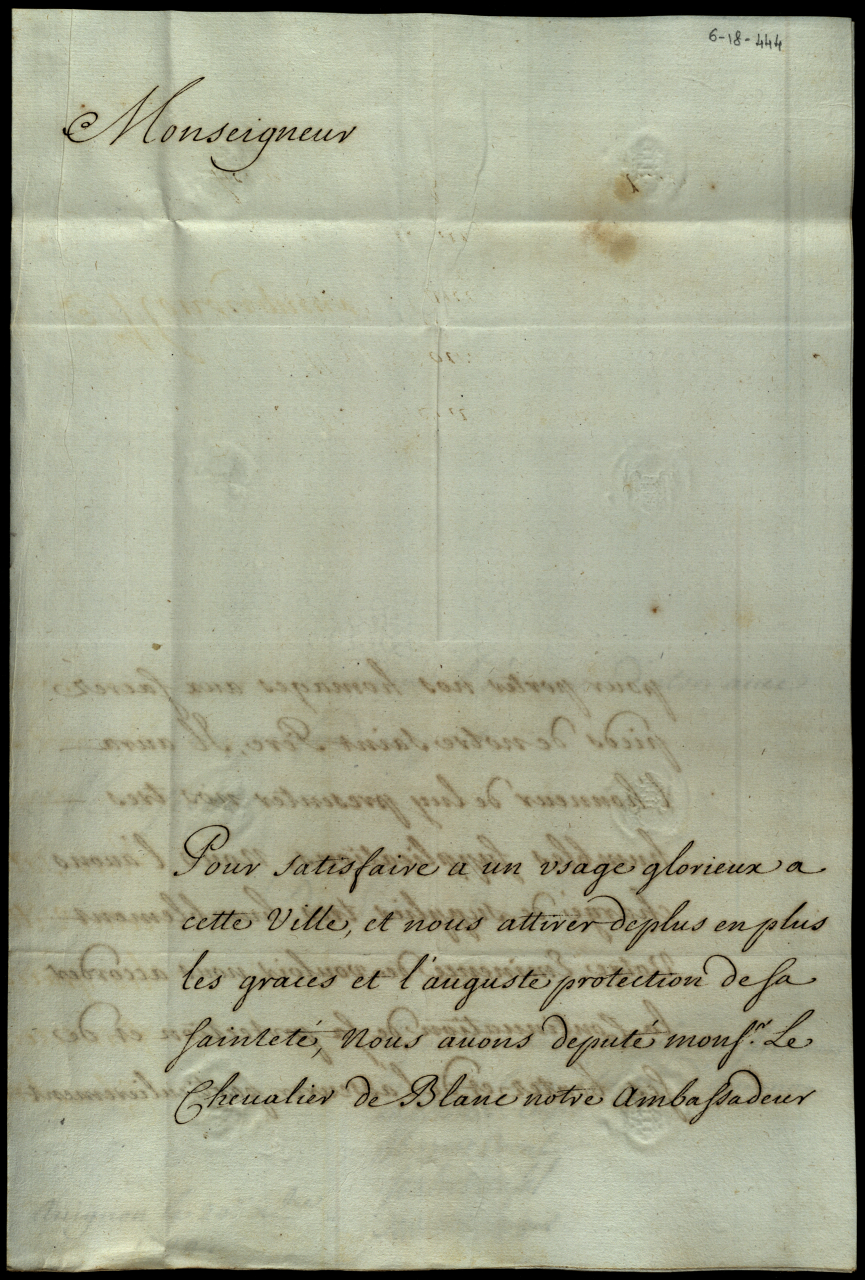 6-18-444
Monseigneur
Pour satisfaire a un vsage glorieux a
cette Ville, et nous attirer deplus en plus
les graces et l'auguste protection de sa
sainteté, Nous auons deputé mons.r Le
Cheualier de Blanc notre Ambassadeur